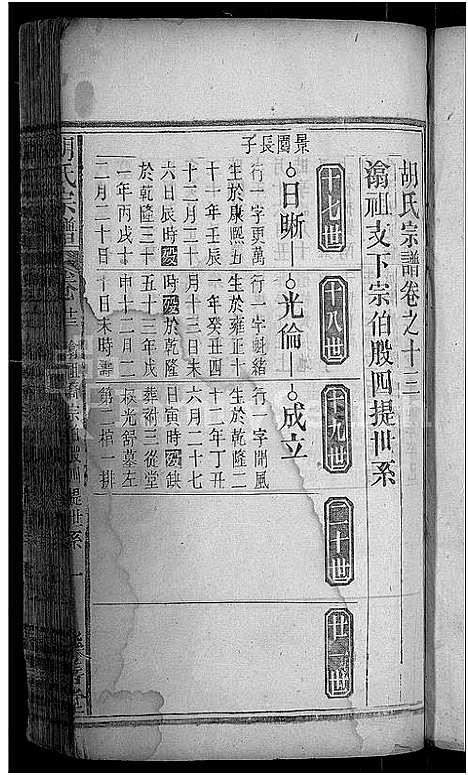 胡氏宗譜卷之十三
渝祖支下宗伯股四提世系
十七世
十八世
十九世
二十世
廿一世
景園長子
日晰
行一字更萬
生於康熙五
十一年壬辰
十二月二十
六日辰時歿
於乾隆三十
一年丙戌十
二月二十日
光倫
行一字魁緒
生於雍正十
一年癸丑四
月十三日未
時歿於乾隆
五十三年戌
申十二月二
十日未時壽
成立
行一字開風
生於乾隆二
十二年丁丑
六月二十七
日寅時歿缺
葬附三從堂
叔光舒墓左
第二棺一排
胡氏宗譜